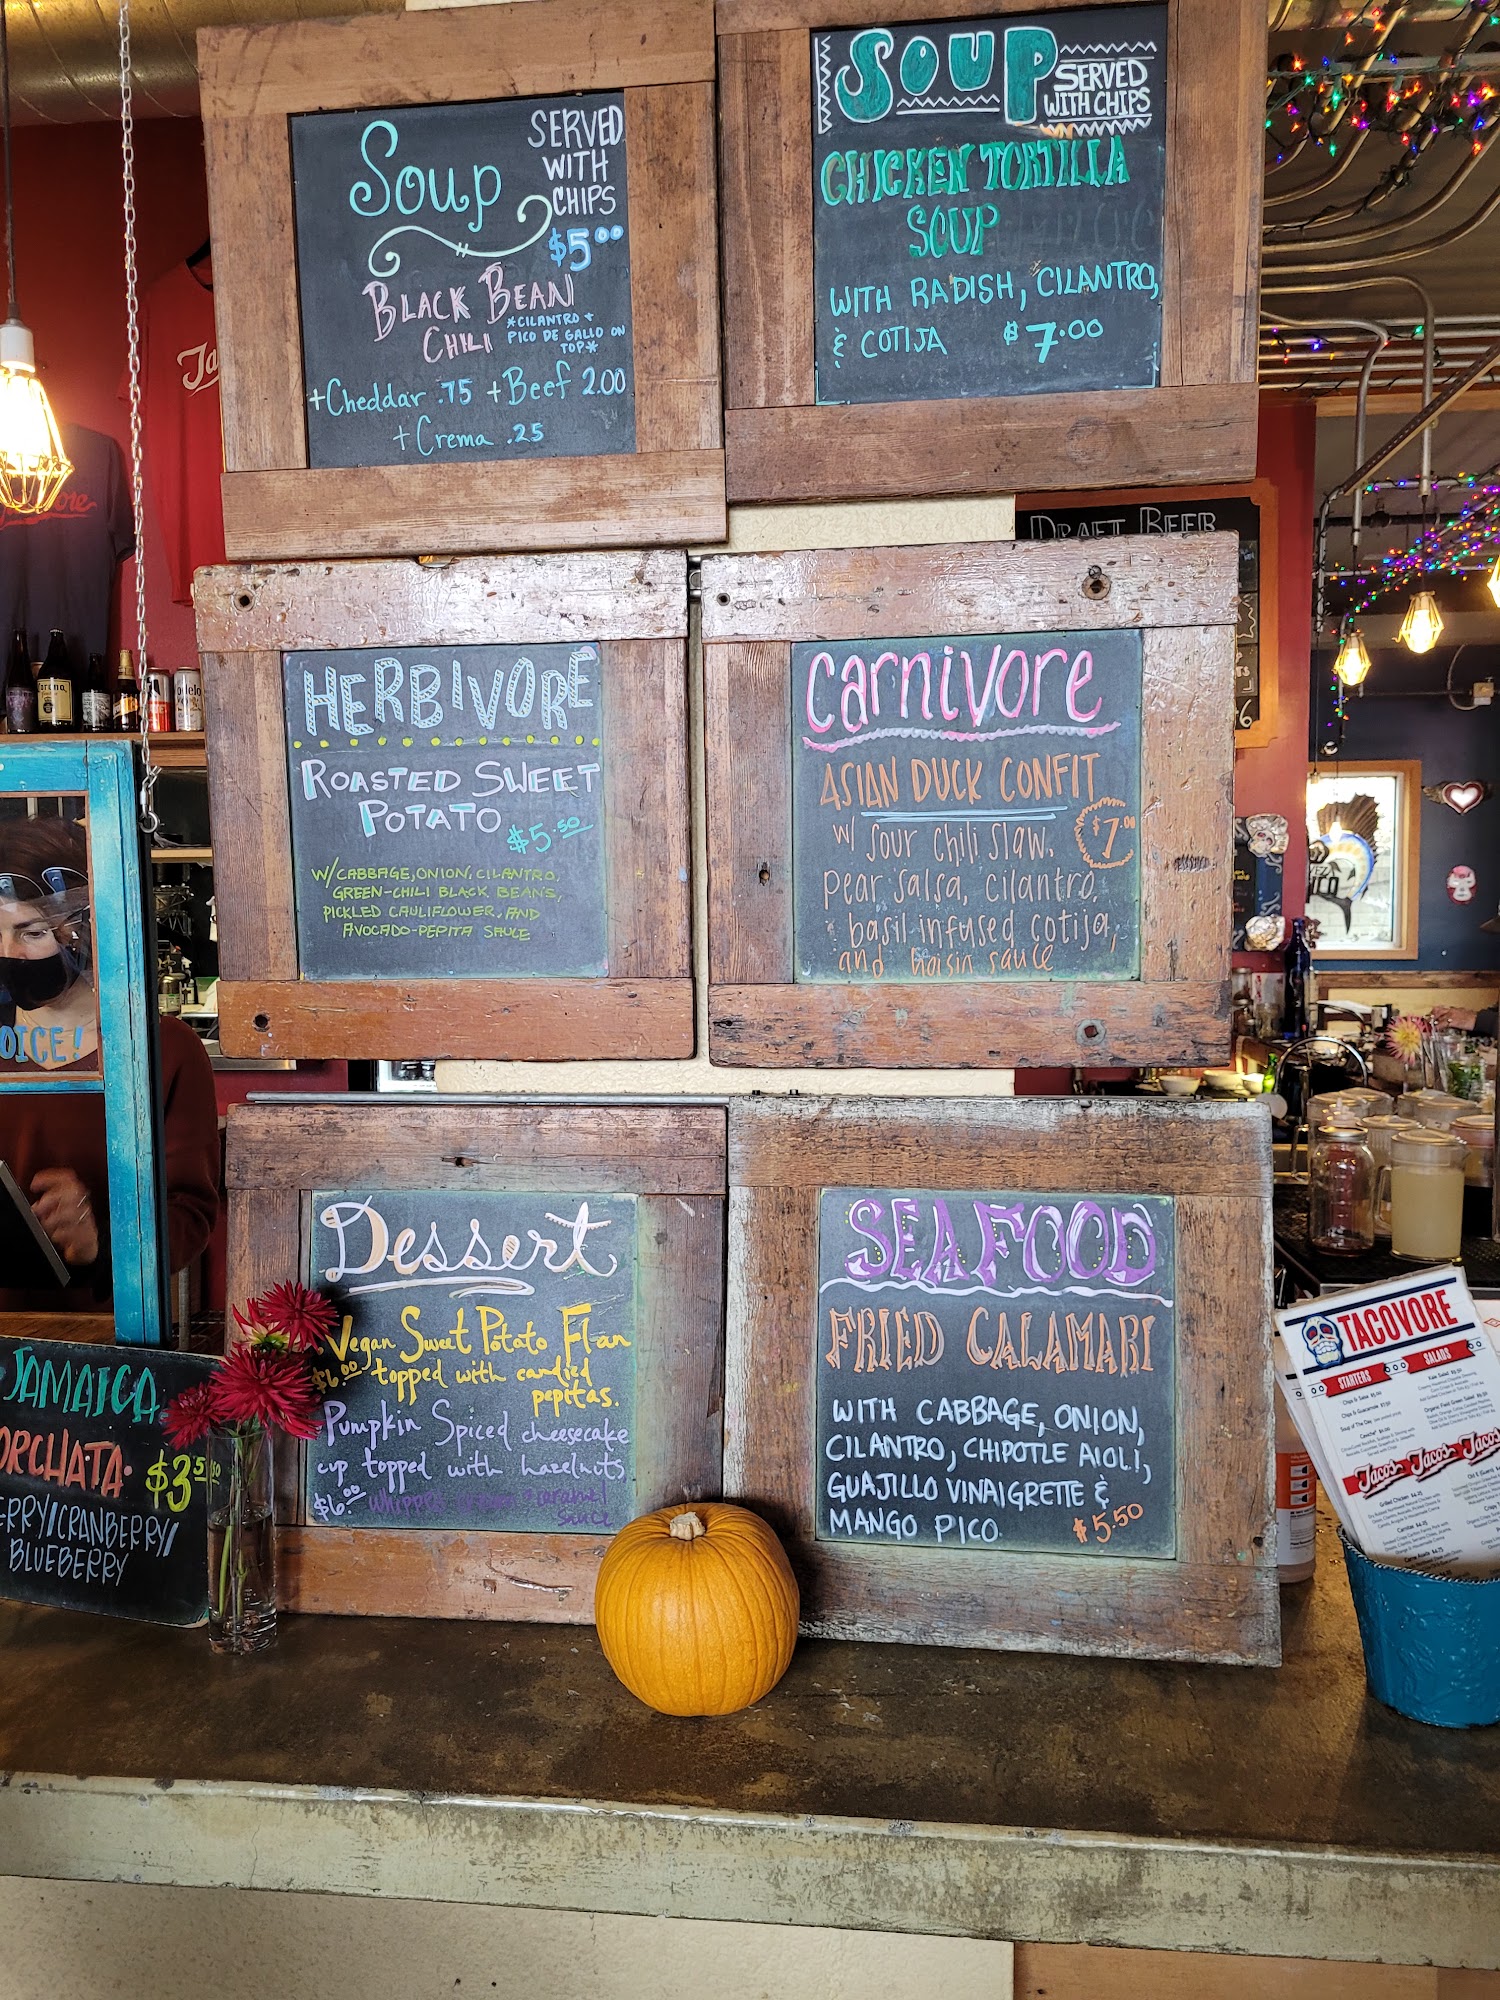 Soup
SERVED
WITH
CHIPS
$5.00
BLACK BEAN
CHILI
*CILANTRO +
PICO DE GALLO ON
TOP*
+Cheddar .75 +Beef 2.00
+Crema .25
SOUP
SERVED
WITH CHIPS
CHICKEN TORTILLA
SOUP
WITH RADISH, CILANTRO,
& COTIJA $7.00
DRAFT BEER
HERBIVORE
ROASTED SWEET
POTATO $5.50
W/CABBAGE, ONION, CILANTRO,
GREEN-CHILI BLACK BEANS,
PICKLED CAULIFLOWER, AND
AVOCADO-PEPITA SAUCE
Carnivore
ASIAN DUCK CONFIT
$7.00
w/ sour chili slaw,
pear salsa, cilantro,
basil-infused cotija,
and hoisin sauce
OICE!
Dessert
Vegan Sweet Potato Flan
$6.00 topped with candied
pepitas.
Pumpkin Spiced cheesecake
cup topped with hazelnuts
$6.00 whipped cream caramel
sauce
SEAFOOD
FRIED CALAMARI
WITH CABBAGE, ONION,
CILANTRO, CHIPOTLE AIOLI,
GUAJILLO VINAIGRETTE &
MANGO PICO $5.50
JAMAICA
ORCHATA $3.50
ERRY/CRANBERRY/
BLUEBERRY
TACOVORE
STARTERS
SALADS
Chips & Salsa
Chips & Guacamole
Soup of the Day
Tacos Tacos Tacos
Grilled Chicken
Carnitas
Carne Asada